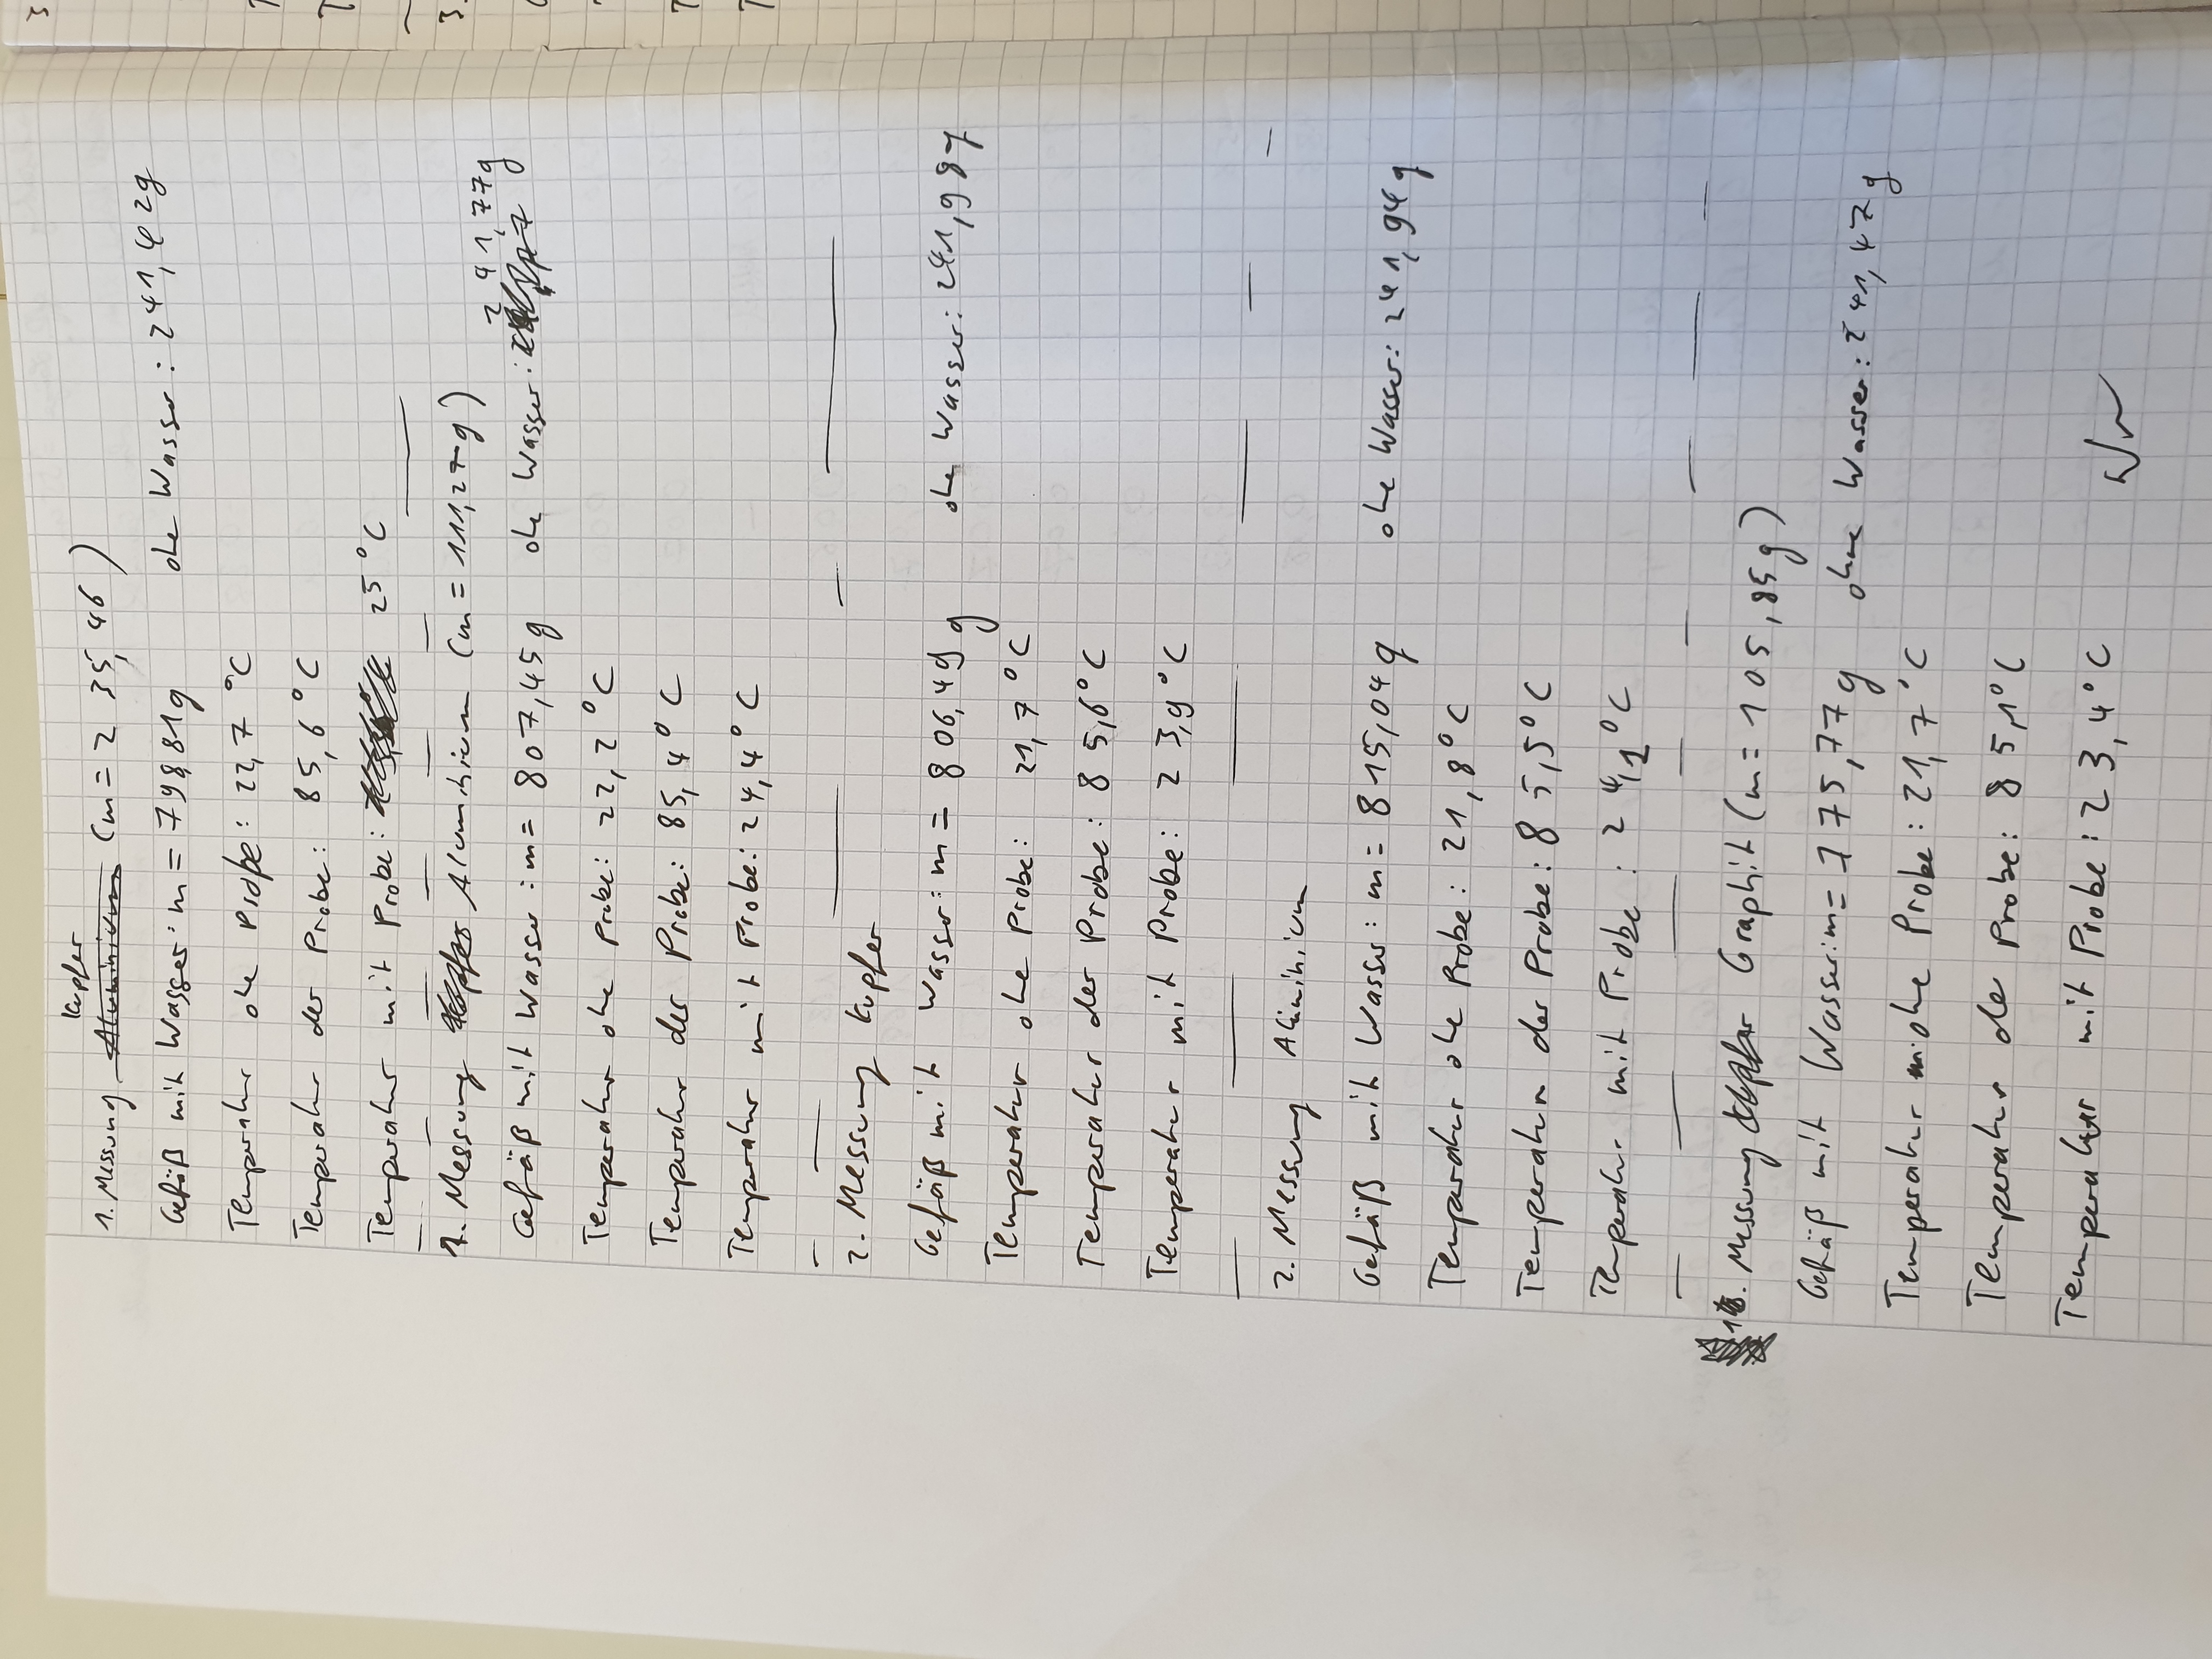 Kupfer
1. Messung (m = 235,46)
Gefäß mit Wasser: m = 798,81g ohe Wasser: 241,42g
Temperatur ohe Probe: 22,7 °C
Temperatur der Probe: 85,6 °C
Temperatur mit Probe: 25°C
1. Messung Aluminium (m = 111,27g)
Gefäß mit Wasser: m = 807,45g ohe Wasser: 241,77g
Temperatur ohe Probe: 22,2 °C
Temperatur der Probe: 85,4 °C
Temperatur mit Probe: 24,4 °C
2. Messung Kupfer
Gefäß mit Wasser: m = 806,49 g ohe Wasser: 241,98
Temperatur ohe Probe: 21,7 °C
Temperatur der Probe: 85,6°C
Temperatur mit Probe: 23,9°C
2. Messung Aluminium
Gefäß mit Wasser: m = 815,04g ohe Wasser: 241,94g
Temperatur ohe Probe: 21,8°C
Temperatur der Probe: 85,5°C
Temperatur mit Probe: 24,1°C
1. Messung Graphit (m = 105,85g)
Gefäß mit Wasser: m = 775,77g ohne Wasser: 241,47g
Temperatur ohe Probe: 21,7°C
Temperatur de Probe: 85,1°C
Temperatur mit Probe: 23,4°C